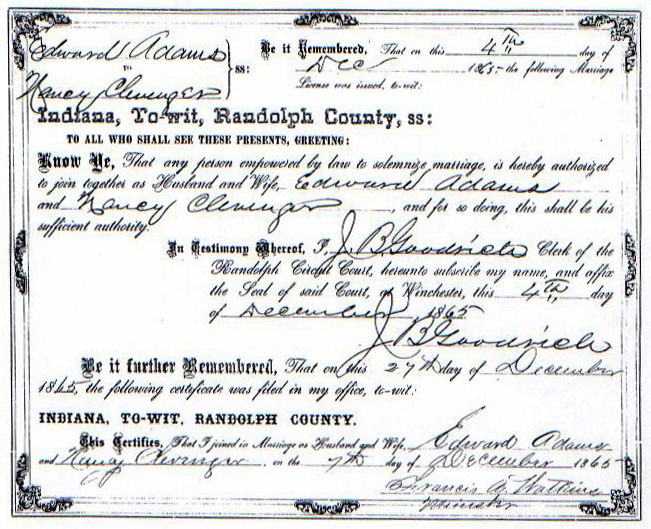 Edward Adams
TO
Nancy Clevenger
ss:
Be it Remembered, That on this 4TH day of
Dec 1865 the following Marriage
License was issued, to-wit:
Indiana, To-wit, Randolph County, ss:
TO ALL WHO SHALL SEE THESE PRESENTS, GREETING:
Know Ye, That any person empowered by law to solemnize marriage, is hereby authorized
to join together as Husband and Wife, Edward Adams
and Nancy Clevenger, and for so doing, this shall be his
sufficient authority.
In Testimony Whereof, I, J. B. Goodrich Clerk of the
Randolph Circuit Court, hereunto subscribe my name, and affix
the Seal of said Court, at Winchester, this 4TH day
of December 1865
J B Goodrich
Be it further Remembered, That on this 27th day of December
1865, the following certificate was filed in my office, to-wit:
INDIANA, TO-WIT, RANDOLPH COUNTY.
This Certifies, That I joined in Marriage as Husband and Wife, Edward Adams
and Nancy Clevenger, on the 7th day of December 1865
Francis Watkins
Minister